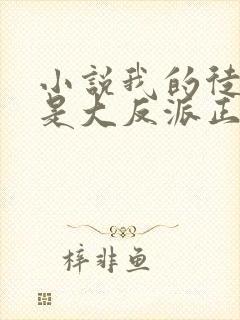 小说我的徒
是大反派正
梓非鱼